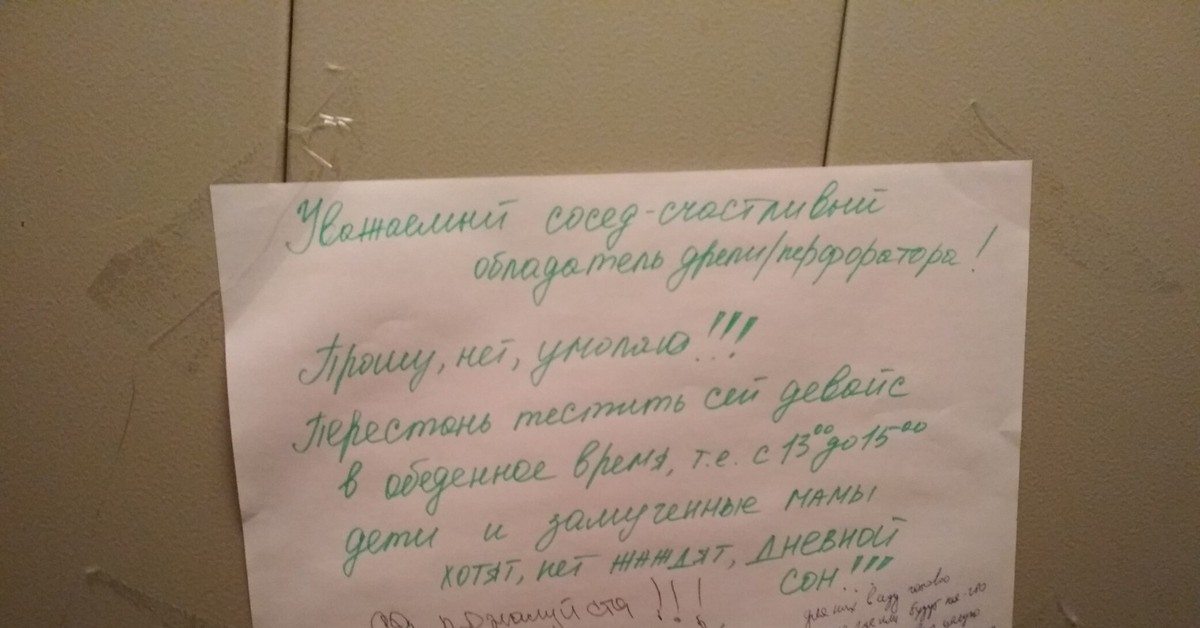 Уважаемый сосед-счастливый
обладатель дрели/перфоратора!
Прошу, нет, умоляю!!!
Перестань тестить сей девайс
в обеденное время, т.е. с 13⁰⁰ до 15⁰⁰
дети и замученные мамы
хотят, нет жаждят, дневной
сон!!!
да пожалуйста !!!
для них
будут